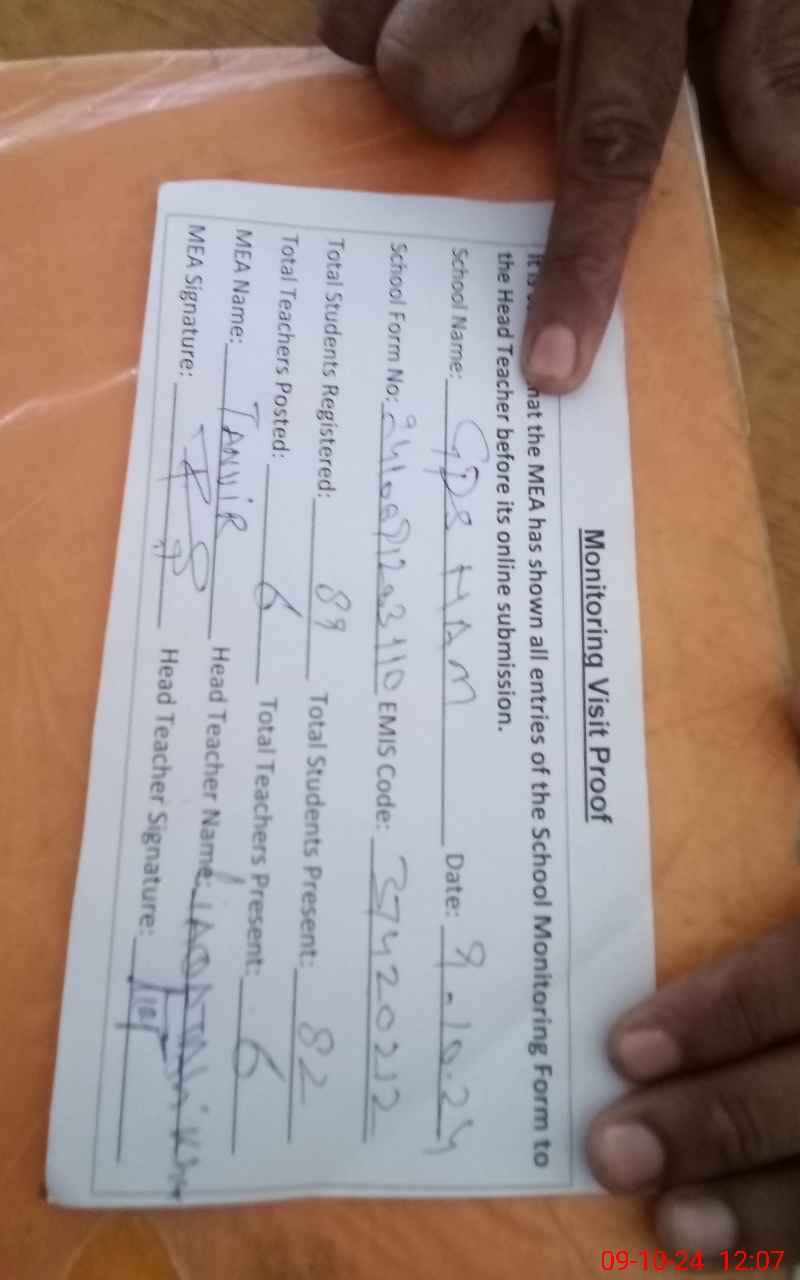 Monitoring Visit Proof
It is hat the MEA has shown all entries of the School Monitoring Form to
the Head Teacher before its online submission.
School Name: GPS HAM Date: 9-10-24
School Form No: EMIS Code: 37420212
Total Students Registered: 89 Total Students Present: 82
Total Teachers Posted: 6 Total Teachers Present: 6
MEA Name: TANVIR Head Teacher Name:
MEA Signature: Head Teacher Signature:
09-10-24 12:07